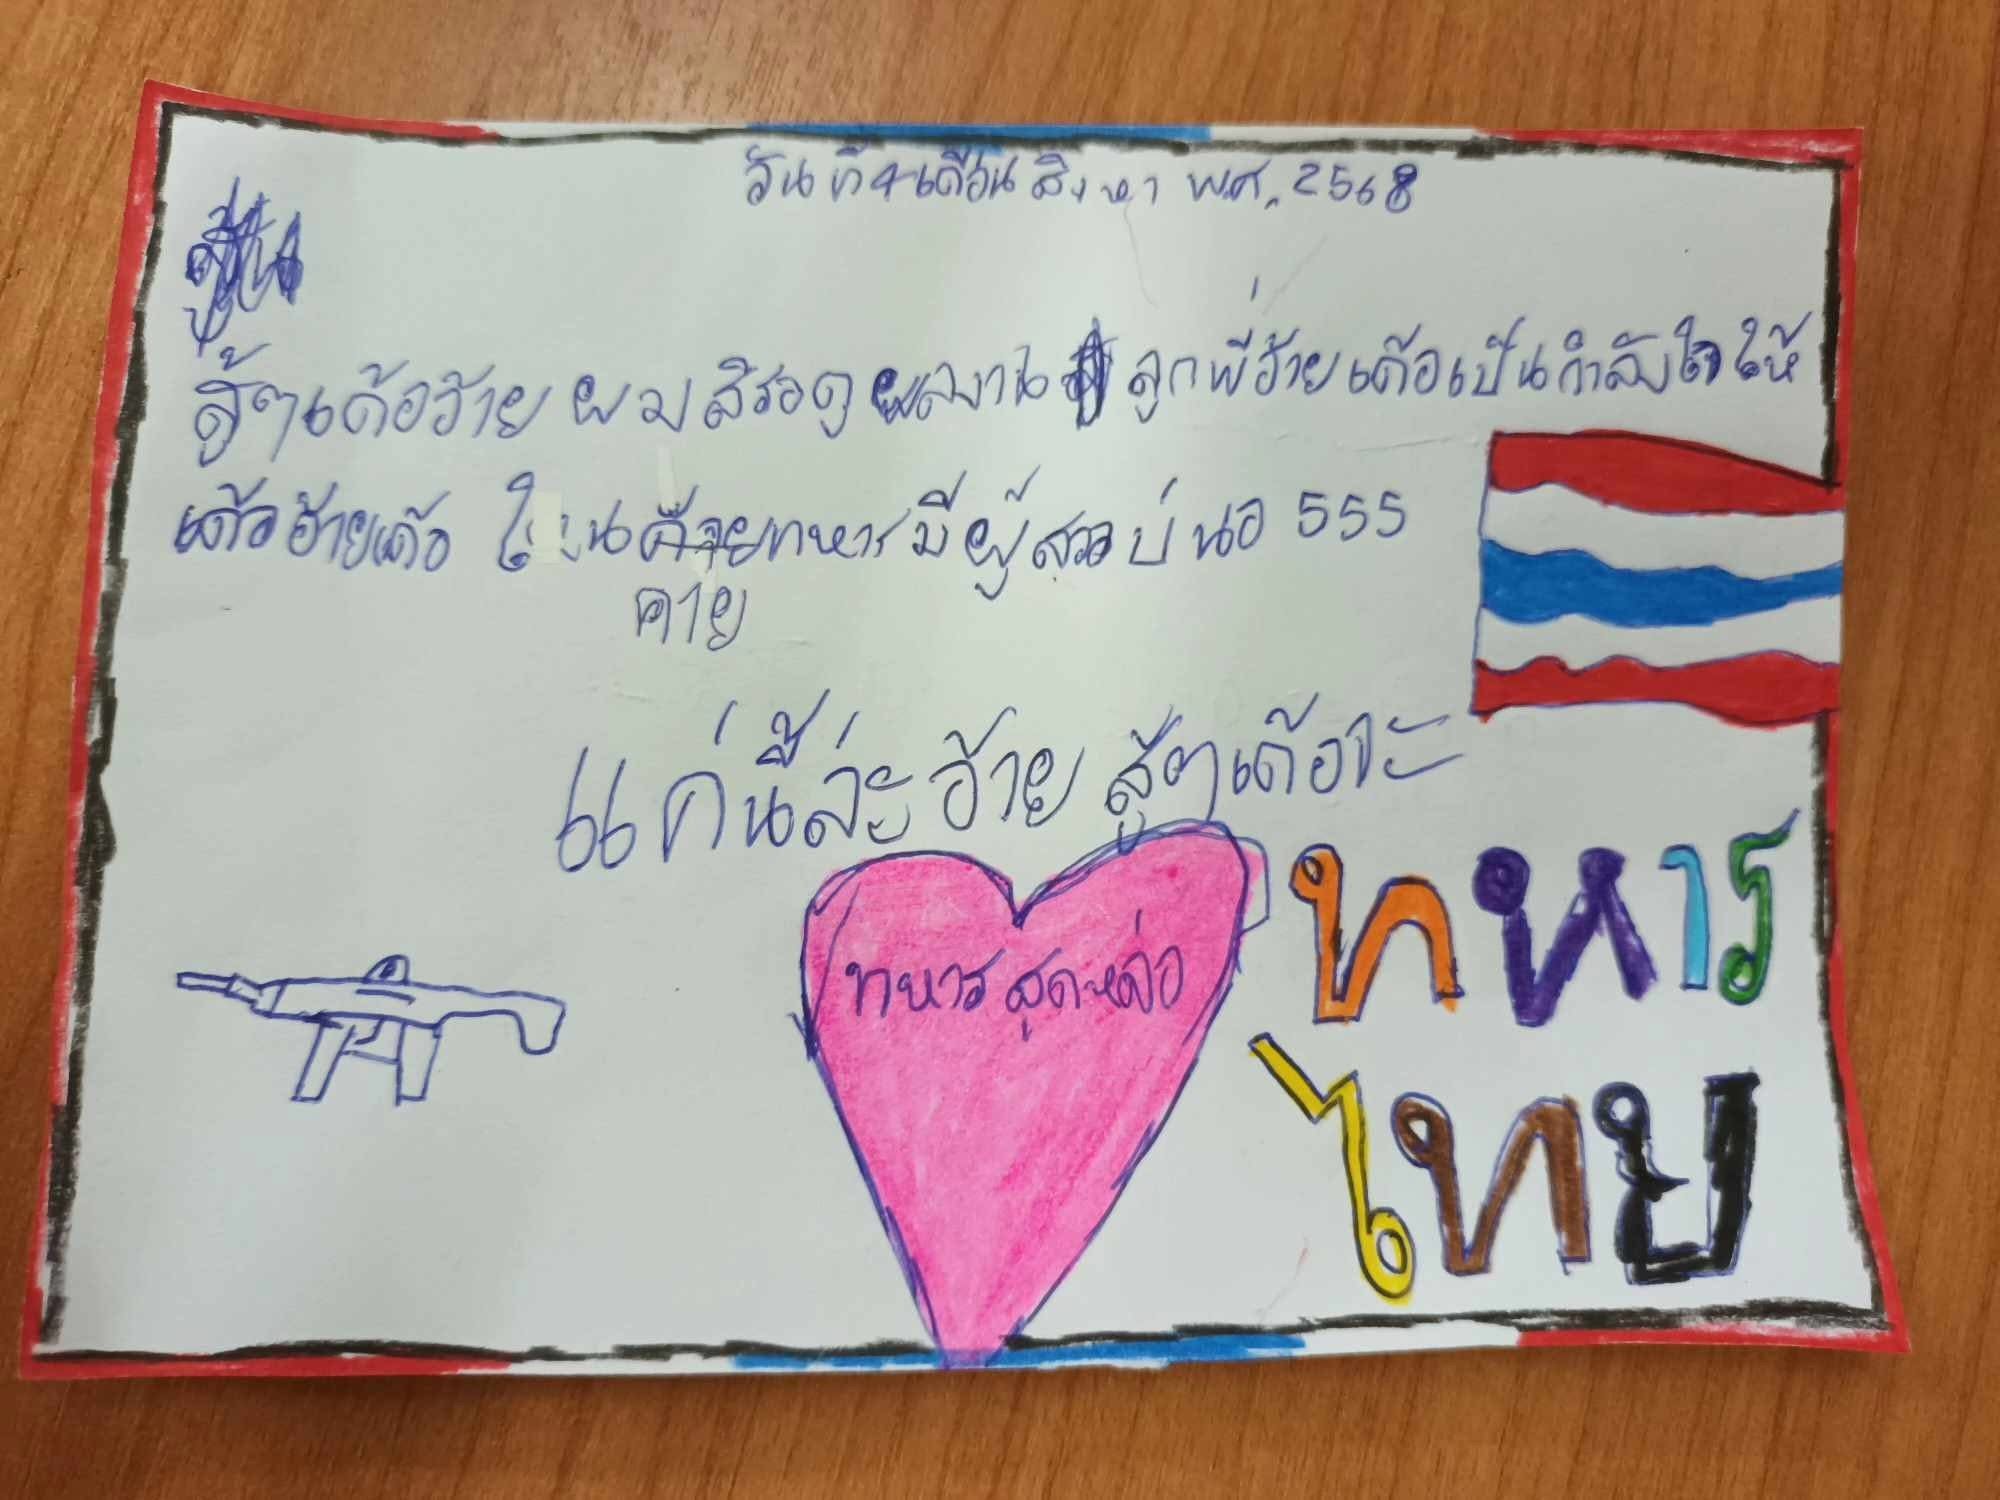 วันที่ 4 เดือน สิงหา พศ. 2568
สู้ๆเด้ออ้าย ผมสิรอดูผลงาน ลูกพี่อ้ายเด้อเป็นกำลังใจให้
เด้ออ้ายเด้อ ใน ทหารมีผู้สาวบ่นอ 555
คาย
แค่นี้ล่ะอ้าย สู้ๆเด้อจะ
ทหารสุดหล่อ
ทหาร
ไทย